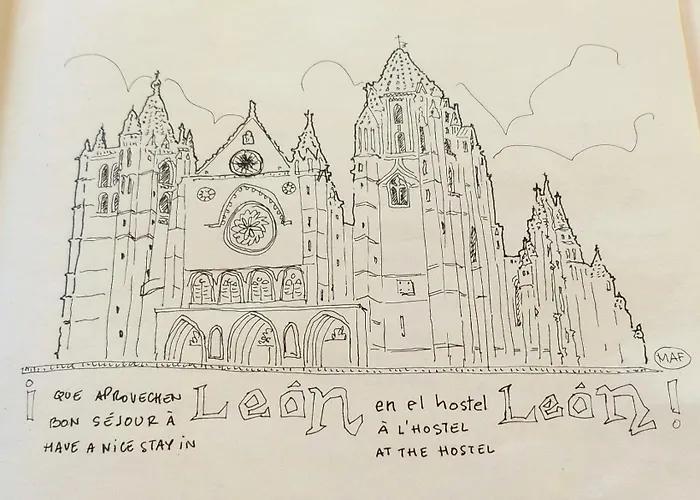 MAF
¡ QUE APROVECHEN
BON SÉJOUR À
HAVE A NICE STAY IN
León
en el hostel
À L'HOSTEL
AT THE HOSTEL
León !